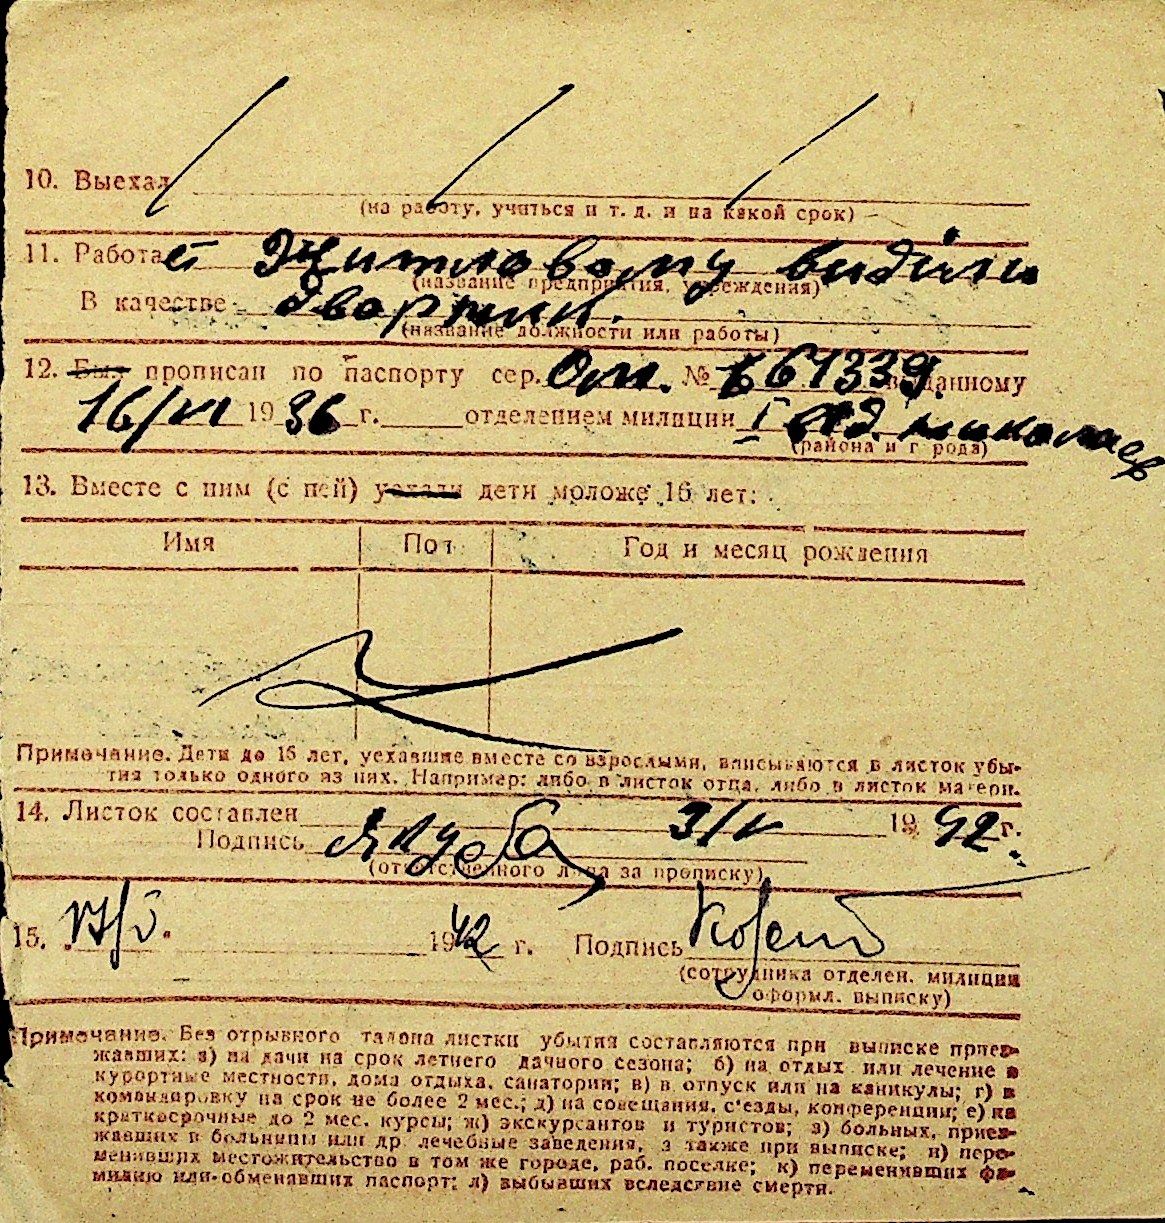 10. Выехал
(на работу, учиться и т. д. и на какой срок)
11. Работает Житловому видділи
(название предприятия, учреждения)
В качестве двірник.
(название должности или работы)
12. Был прописан по паспорту сер. № 661339 выданному
16/VI 1936 г. отделением милиции I николаев
(района и города)
13. Вместе с ним (с ней) уехали дети моложе 16 лет:
Имя Пол Год и месяц рождения
Примечание. Дети до 16 лет, уехавшие вместе со взрослыми, вписываются в листок убы-
тия только одного из них. Например: либо в листок отца, либо в листок матери.
14. Листок составлен 3/V 1942 г.
Подпись
(ответственного лица за прописку)
15. 1942 г. Подпись
(сотрудника отделен. милиции
оформл. выписку)
Примечание. Без отрывного талона листки убытия составляются при выписке приез-
жавших: а) на дачи на срок летнего дачного сезона; б) на отдых или лечение в
курортные местности, дома отдыха, санатории; в) в отпуск или на каникулы; г) в
командировку на срок не более 2 мес.; д) на совещания, с'езды, конференции; е) на
краткосрочные до 2 мес. курсы; ж) экскурсантов и туристов; з) больных, приез-
жавших в больницы или др. лечебные заведения, а также при выписке; и) пере-
менивших местожительство в том же городе, раб. поселке; к) переменивших фа-
милию или обменавших паспорт; л) выбывших вследствие смерти.